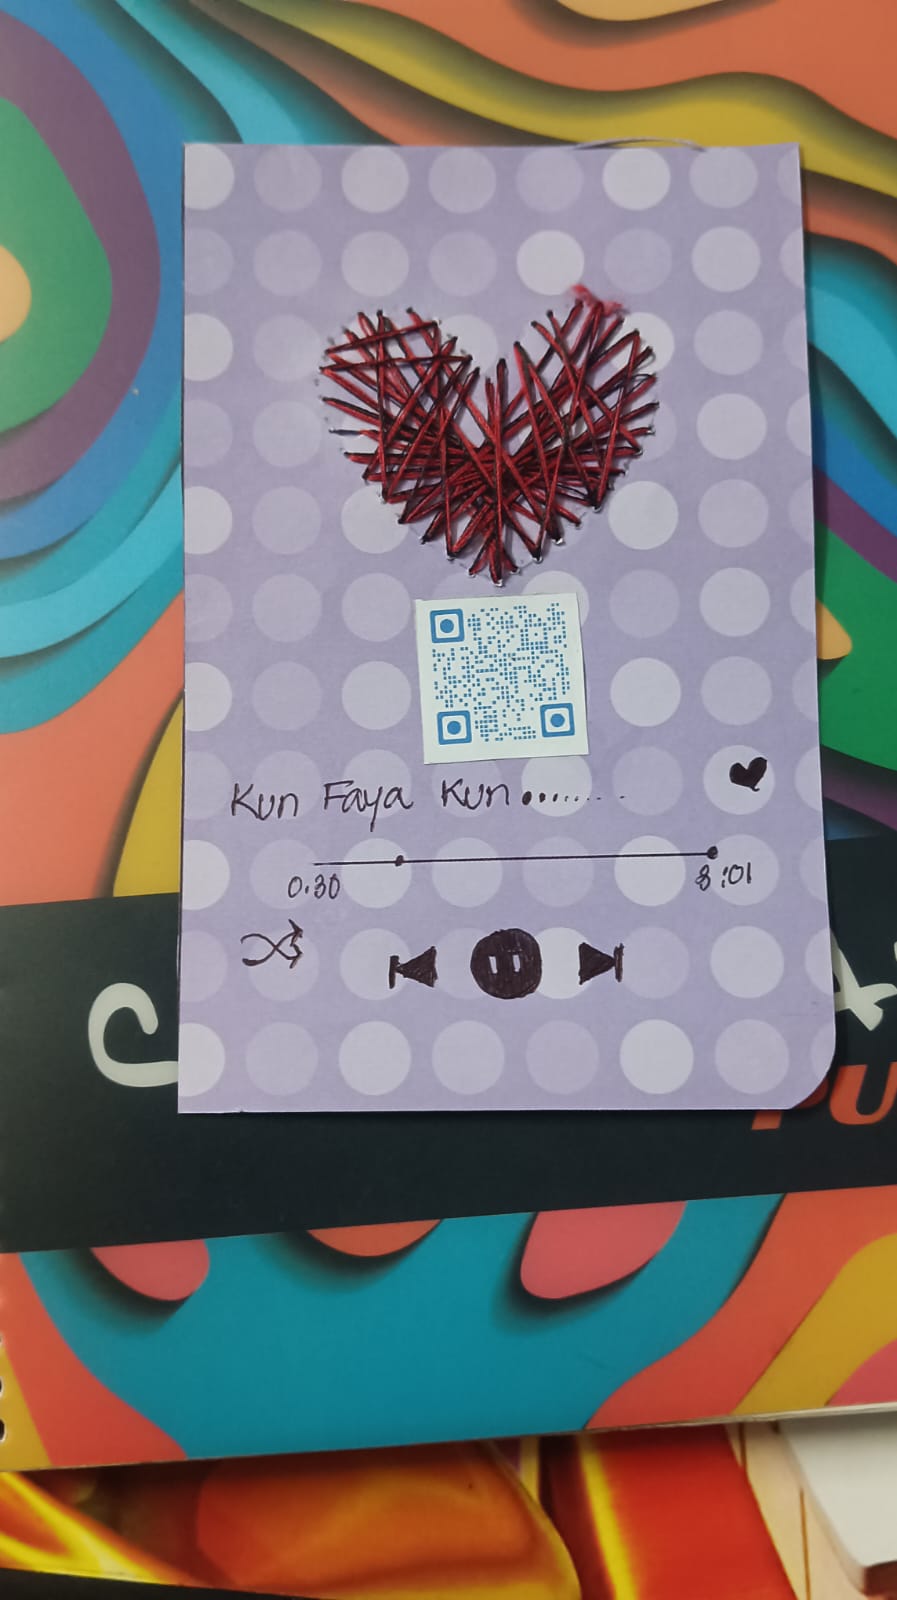 Kun Faya Kun.........
0.30
8:01
PU